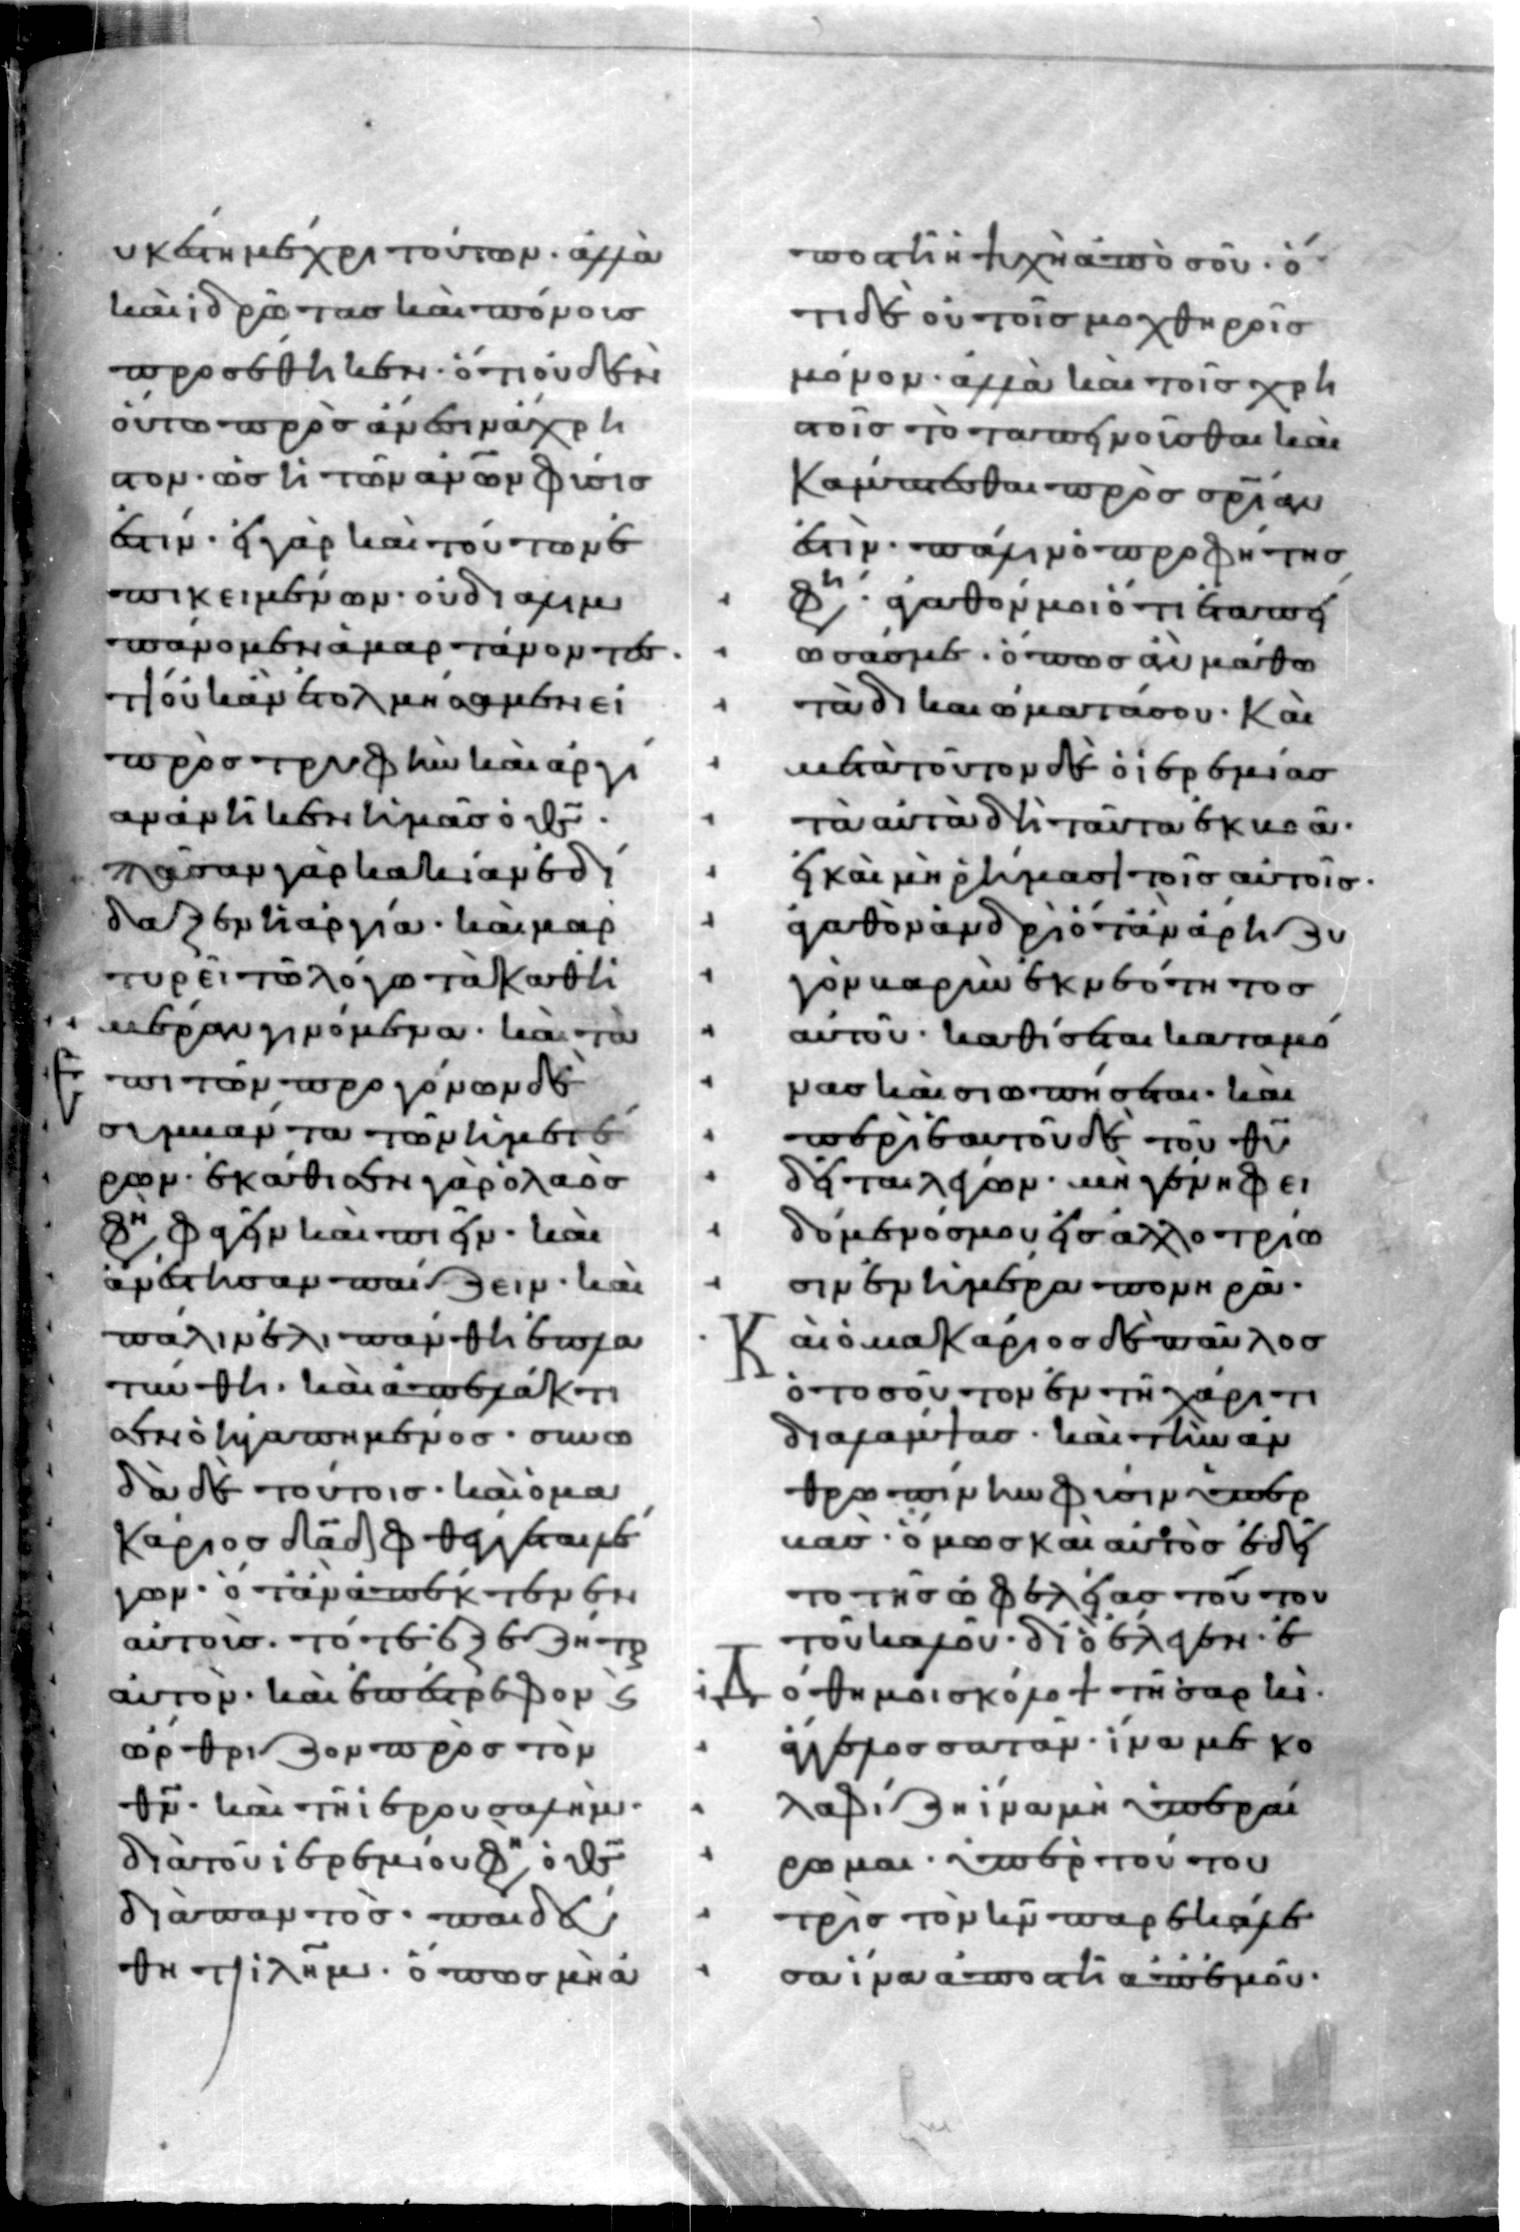 υκ ἔστη μέχρι τούτων· ἀλλὰ
καὶ ἱδρῶτας καὶ πόνοις
προσέθηκεν· ὅτι οὐδὲν
οὕτω πρὸς ἄνεσιν ἄχρη
στον· ὡς ἡ τῶν ἀν̅ων φύσις
ἐστίν· εἰ γὰρ καὶ τούτων ἐ
πικειμένων· οὐ διαλιμ
πάνομεν ἁμαρτάνοντες·
τί οὐκ ἂν ἐτολμήσαμεν εἰ
πρὸς τρυφὴν καὶ ἀργί
αν ἀνῆκεν ἡμᾶς ὁ θς̅·
πᾶσαν γὰρ κακίαν ἐδί
δαξεν ἡ ἀργία· καὶ μαρ
τυρεῖ τῶ λόγω τὰ καθ ἡ
μέραν γινόμενα· καὶ τὰ
ἐπὶ τῶν προγόνων δὲ
συμβάντα τῶν ἡμετέ
ρων· ἐκάθισεν γὰρ ὁ λαὸς
φη φαγεῖν καὶ πιεῖν· καὶ
ἀνέστησαν παίζειν· καὶ
πάλιν ἐλιπάνθη ἐπλα
τύνθη· καὶ ἀπελάκτι
σεν ὁ ἠγαπημένος· συνω
δὰ δὲ τούτοις· καὶ ὁ μα
κάριος δᾱδ φθέγγεται λέ
γων· ὅταν ἀπέκτενεν
αὐτοὺς· τότε ἐξεζήτουν
αὐτὸν· καὶ ἐπέστρεφον καὶ
ὤρθριζον πρὸς τὸν
θν̅· καὶ τῆ ἱερουσαλὴμ·
διὰ τοῦ ἱερεμίου φη ὁ θς̅
διὰ παντὸς· παιδεύ
θητι ἱλῆμ· ὅπως μὴ ἀ
ποστῆ ἡ ψυχὴ ἀπὸ σοῦ· ὅ
τι δὲ οὐ τοῖς μοχθηροῖς
μόνον· ἀλλὰ καὶ τοῖς χρη
στοῖς τὸ ταπεινοῖσθαι καὶ
κάμπτεσθαι πρὸς σρίαν
ἐστὶν· πάλιν ὁ προφήτης
φη· ἀγαθόν μοι ὅτι ἐταπεί
ωσάς με· ὅπως ἂν μάθω
τὰ δικαιώματά σου· Καὶ
μετὰ τοῦτον δὲ ὁ ἱερεμίας
τὰ αὐτὰ δὴ ταῦτα ἐκβοᾶ·
εἰ καὶ μὴ ῥήμασι τοῖς αὐτοῖς·
ἀγαθὸν ἀνδρὶ ὅταν ἄρη ζυ
γὸν βαρὺν ἐκ νεότητος
αὐτοῦ· καθίσεται καταμό
νας καὶ σιωπήσεται· καὶ
περὶ ἑαυτοῦ δὲ τοῦ θυ̅
δεῖται λέγων· μὴ γένη φει
δόμενός μου εἰς ἀλλοτρίω
σιν ἐν ἡμέρα πονηρᾶ·
Καὶ ὁ μακάριος δὲ παῦλος
ὁ τοσοῦτον ἐν τῆ χάριτι
διαλάμψας· καὶ τὴν ἀν
θρωπίνην φύσιν ὑπερ
βὰς· ὅμως καὶ αὐτὸς ἐδεῖ
το τῆς ὠφελείας τούτου
τοῦ καλοῦ· διὸ ἔλεγεν· ἐ
δόθη μοι σκόλοψ τῆ σαρκὶ·
ἄγγελος σατᾶν· ἵνα με κο
λαφίζη ἵνα μὴ ὑπεραί
ρωμαι· ὑπὲρ τούτου
τρὶς τὸν κν̅ παρεκάλε
σα ἵνα ἀποστῆ ἀπ᾽ ἐμοῦ·